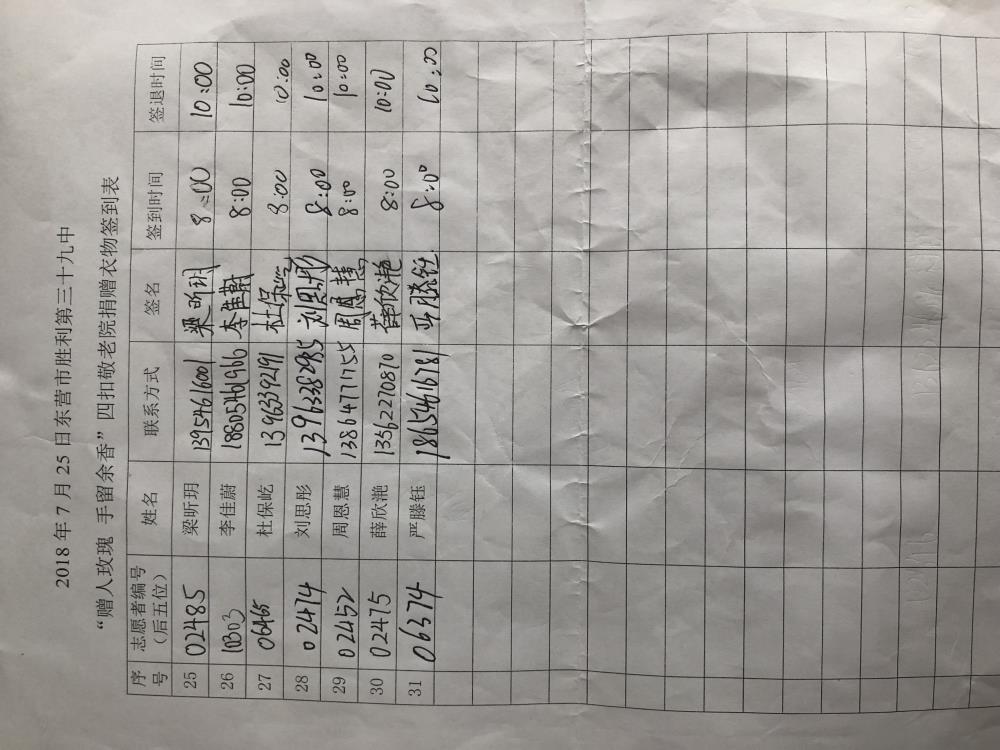 2018 年 7 月 25 日东营市胜利第三十九中
“赠人玫瑰 手留余香”四扣敬老院捐赠衣物签到表
序号 志愿者编号（后五位） 姓名 联系方式 签名 签到时间 签退时间
25 02485 梁昕玥 13954616001 梁昕玥 8:00 10:00
26 10303 李佳蔚 18805461966 李佳蔚 8:00 10:00
27 06465 杜保屹 13963392191 杜保屹 8:00 10:00
28 02474 刘思彤 13963382985 刘思彤 8:00 10:00
29 02452 周恩慧 13864771755 周恩慧 8:00 10:00
30 02475 薛欣滟 13562270870 薛欣滟 8:00 10:00
31 06374 严滕钰 18654616781 严滕钰 8:00 10:00